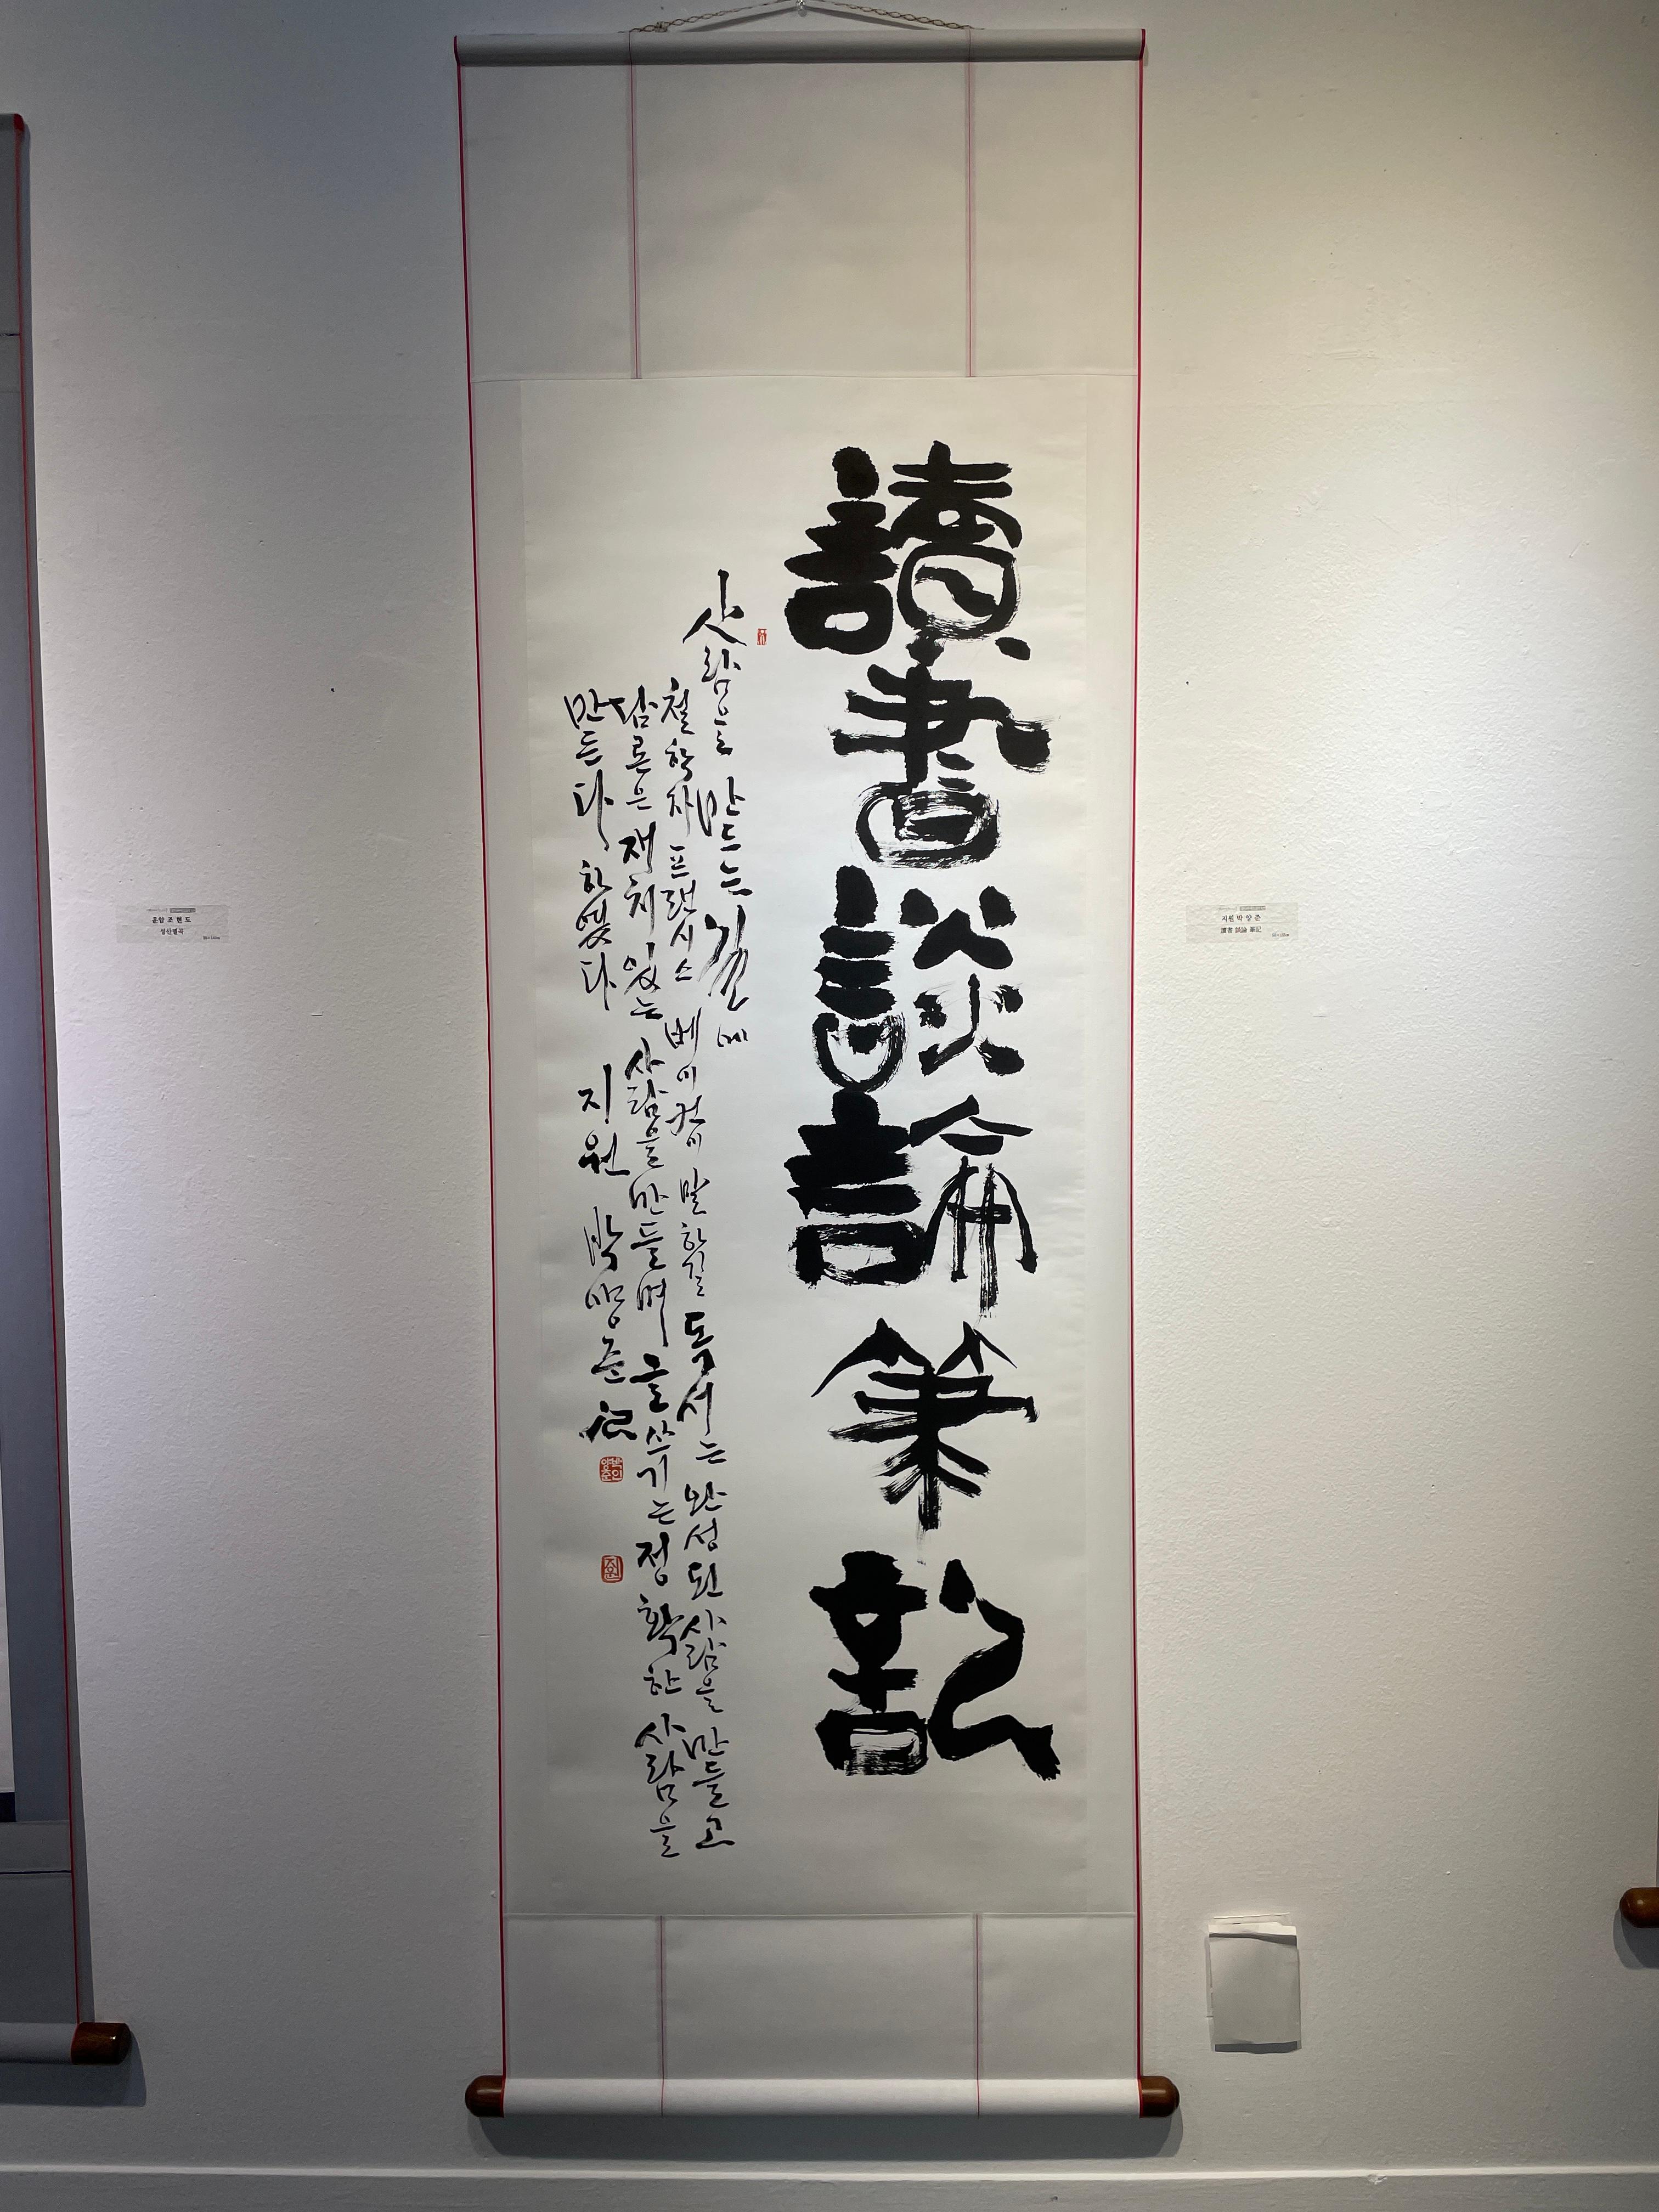 讀書談論筆記
사람을 만드는 길에
철학자 프랜시스 베이컨이 말하길 독서는 완성된 사람을 만들고
담론은 재치있는 사람을 만들며 글쓰기는 정확한 사람을
만든다 하였다 지원 박양준 記
박인양준
지원
운암 조현도
성산별곡
지원 박양준
讀書 談論 筆記